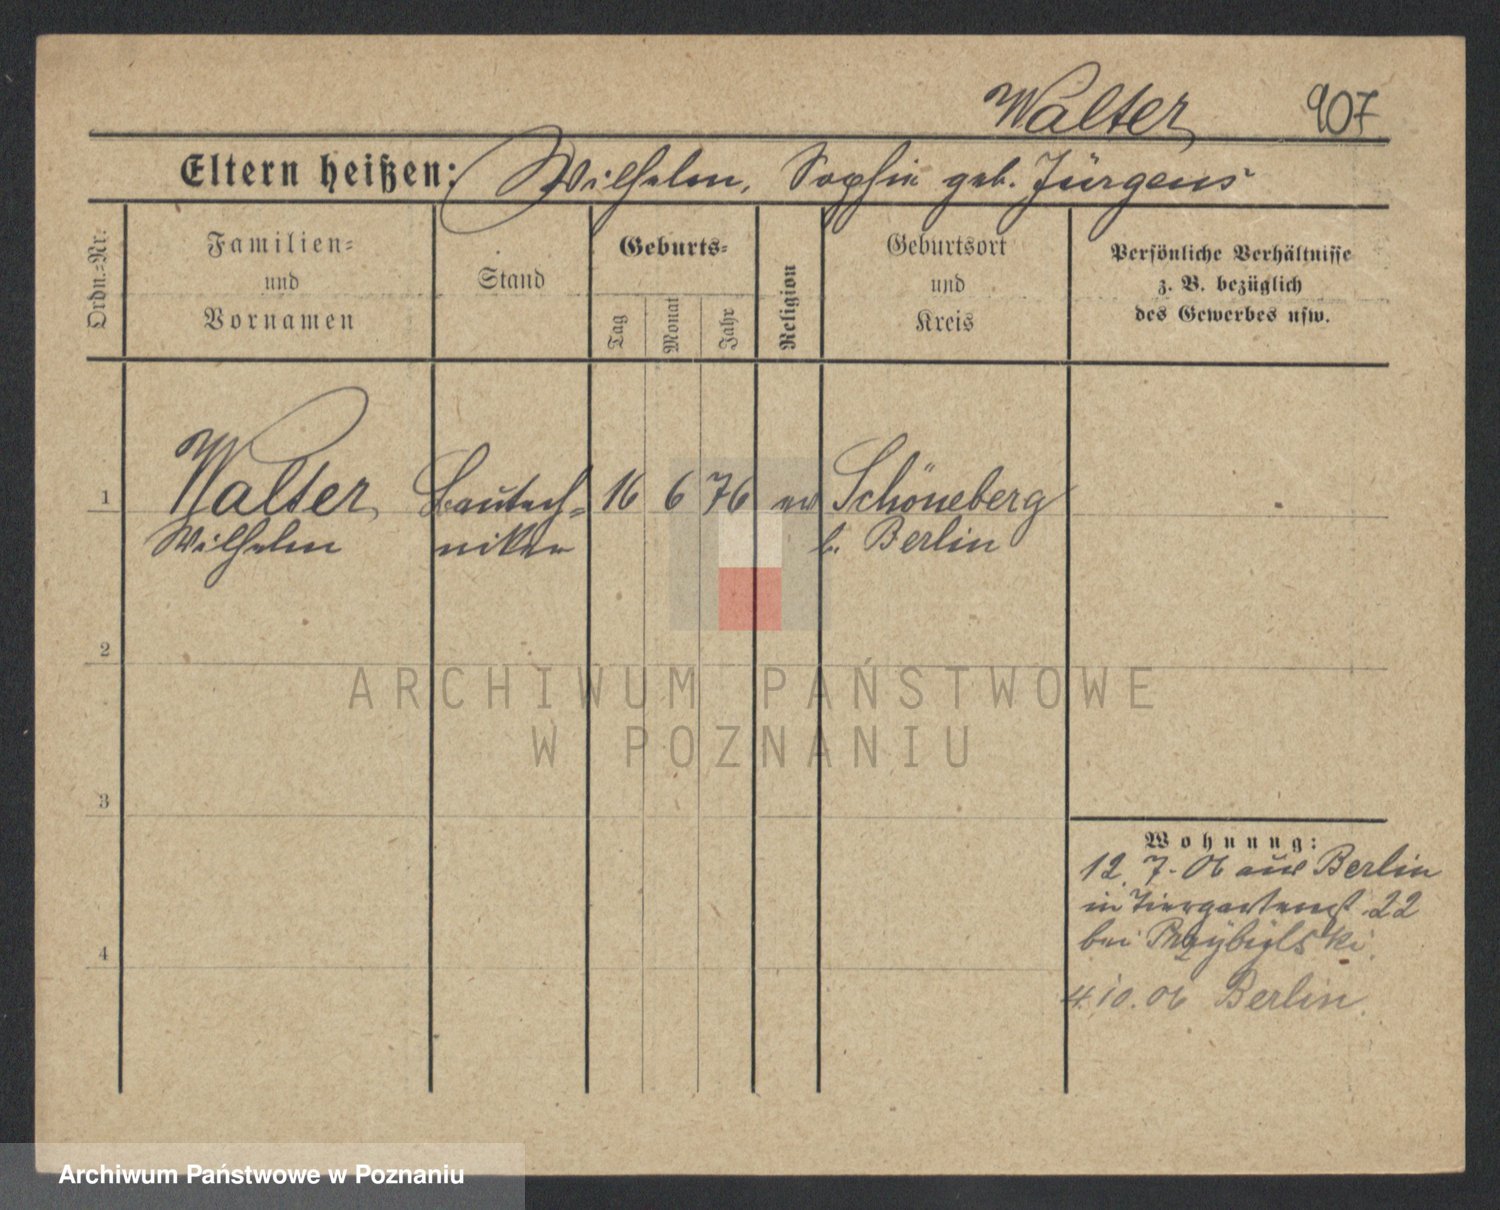 Walter 907
Eltern heißen: Wilhelm, Sophie geb. Jürgens
Ordn.=Nr.
Familien=
und
Vornamen
Stand
Geburts=
Tag
Monat
Jahr
Religion
Geburtsort
und
Kreis
Persönliche Verhältnisse
z. B. bezüglich
des Gewerbes usw.
1 Walter, Bautech= 16 6 76 ev Schöneberg
Wilhelm niker b. Berlin
2
ARCHIWUM PAŃSTWOWE
W POZNANIU
3
Wohnung:
12. 7. 06 aus Berlin
in Tiergartenst 22
bei Przybylski.
4
4. 10. 06 Berlin.
Archiwum Państwowe w Poznaniu